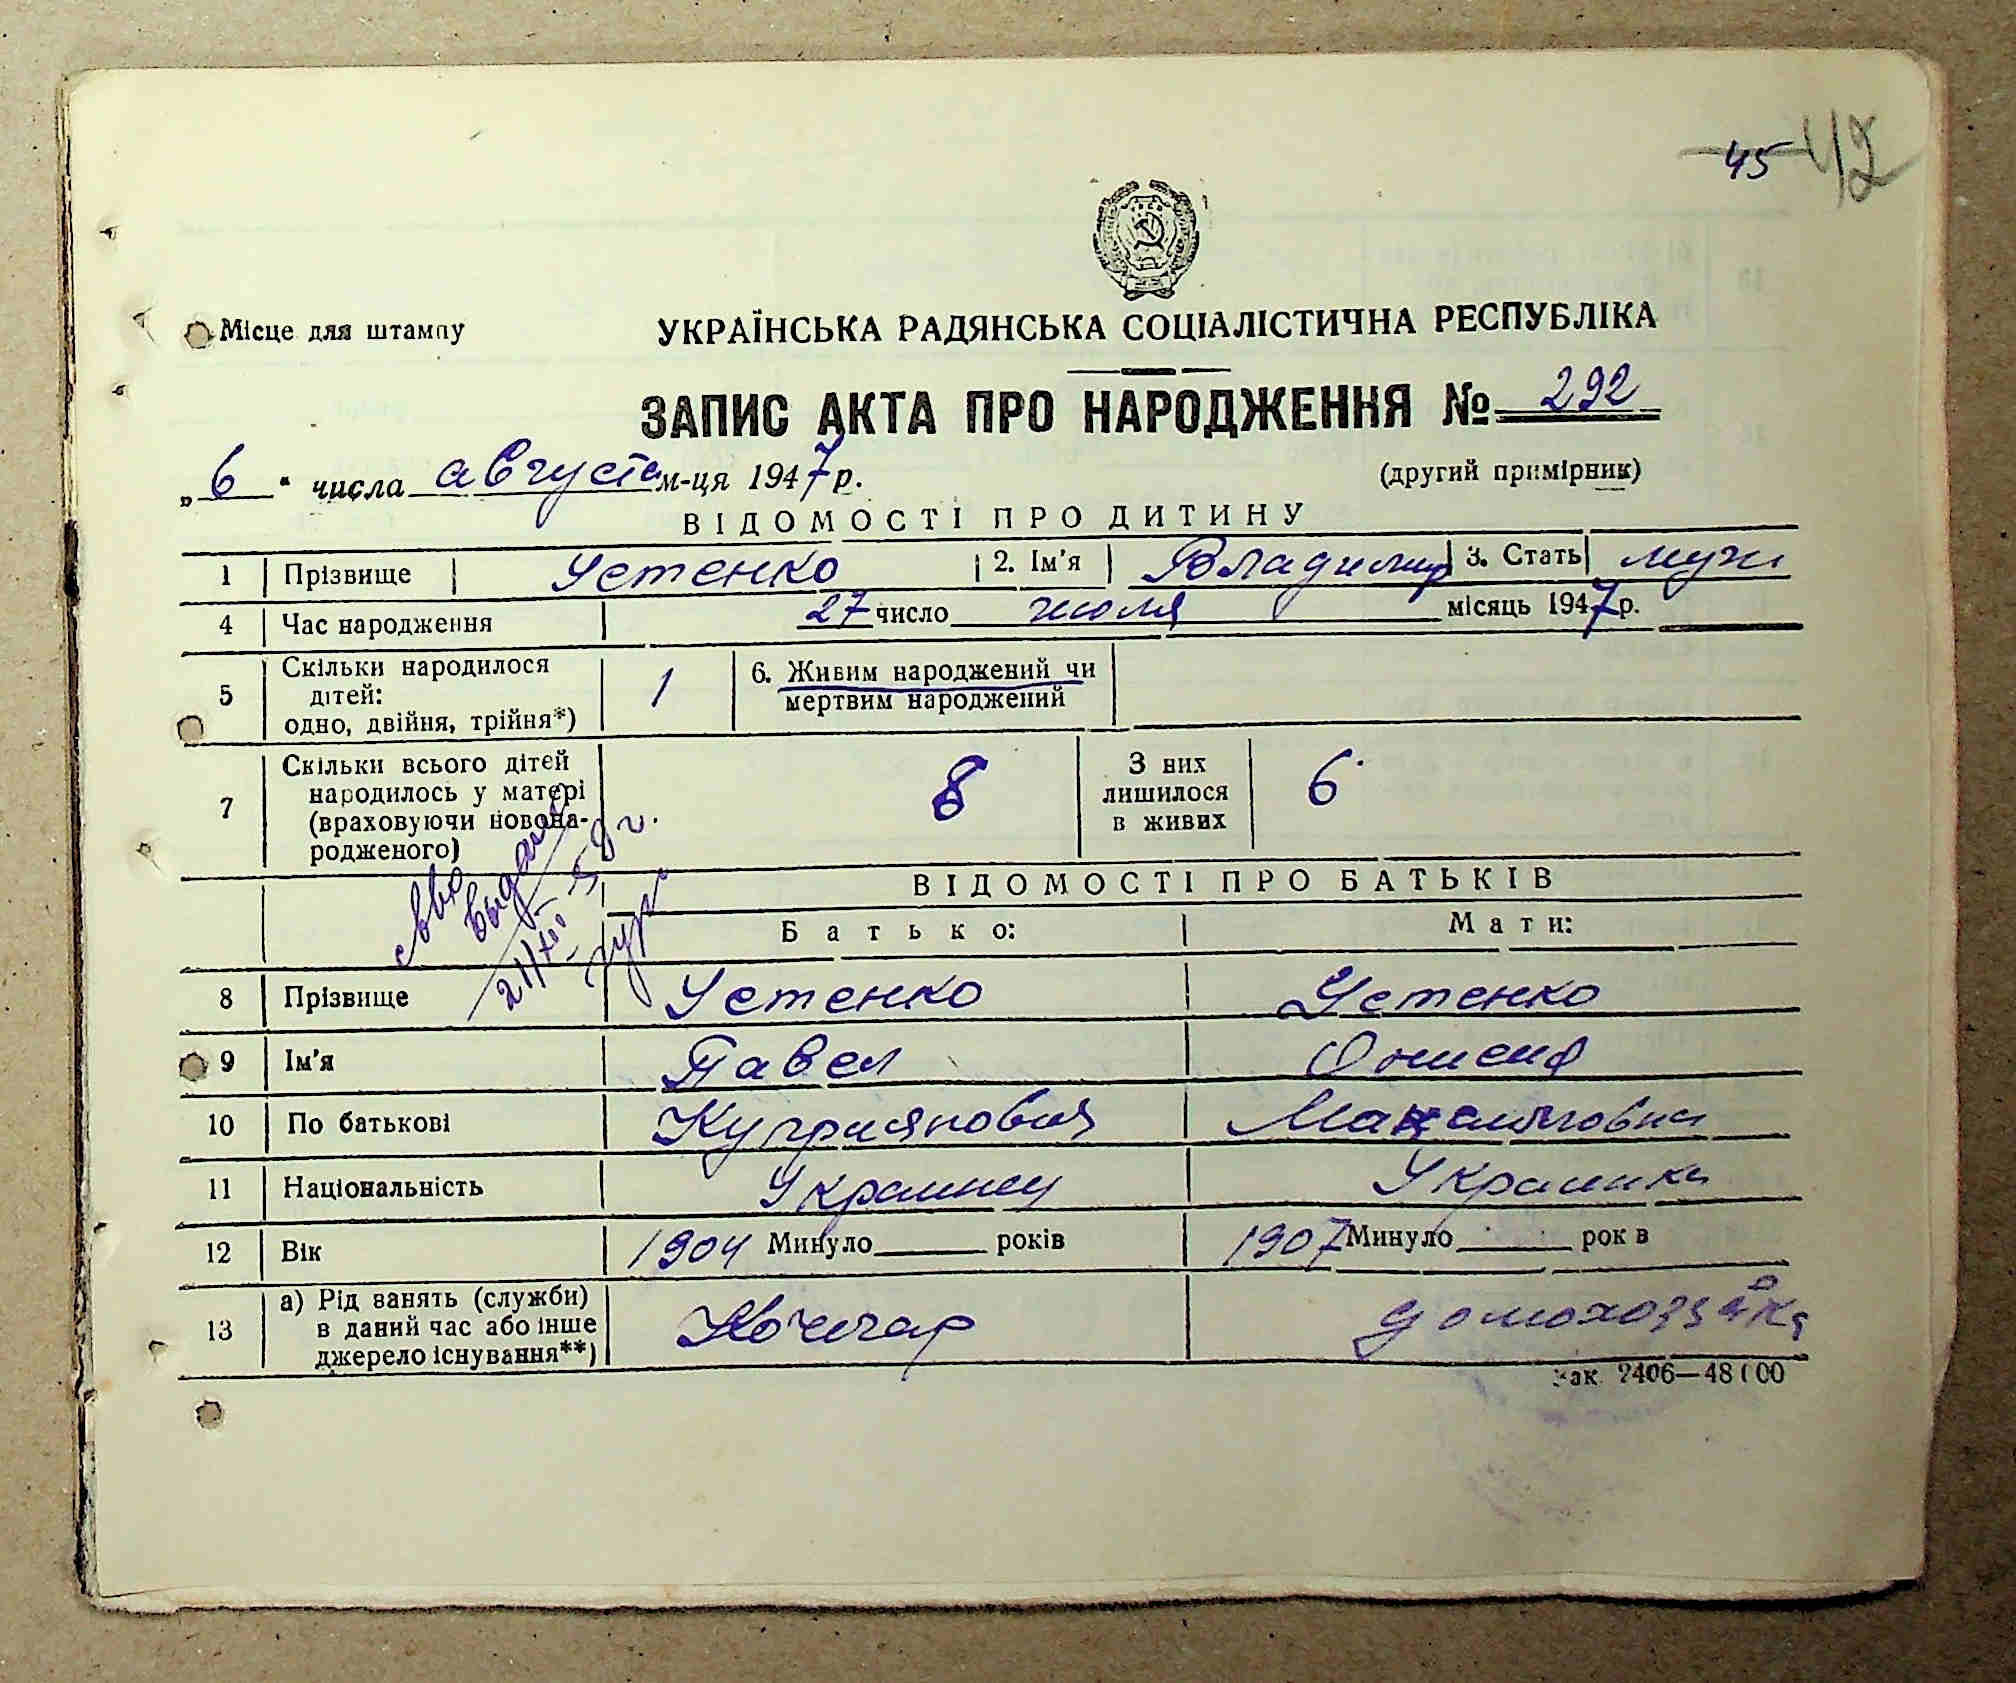 45 42
Місце для штампу
УКРАЇНСЬКА РАДЯНСЬКА СОЦІАЛІСТИЧНА РЕСПУБЛІКА
ЗАПИС АКТА ПРО НАРОДЖЕННЯ № 292
„6“ числа августа м-ця 1947 р.
(другий примірник)
ВІДОМОСТІ ПРО ДИТИНУ
1 Прізвище Устенко 2. Ім'я Владимир 3. Стать муж
4 Час народження 27 число июля місяць 1947 р.
5 Скільки народилося дітей: одно, двійня, трійня*) 1 6. Живим народжений чи мертвим народжений
7 Скільки всього дітей народилось у матері (враховуючи новонародженого) 8 З них лишилося в живих 6
выдано
ВІДОМОСТІ ПРО БАТЬКІВ
Батько: Мати:
8 Прізвище Устенко Устенко
9 Ім'я Павел
10 По батькові Куприянович
11 Національність Украинец Украинка
12 Вік 1904 Минуло років 1907 Минуло рок в
13 а) Рід занять (служби) в даний час або інше джерело існування**) Кочегар домохозяйка
Зак. 2406—48000